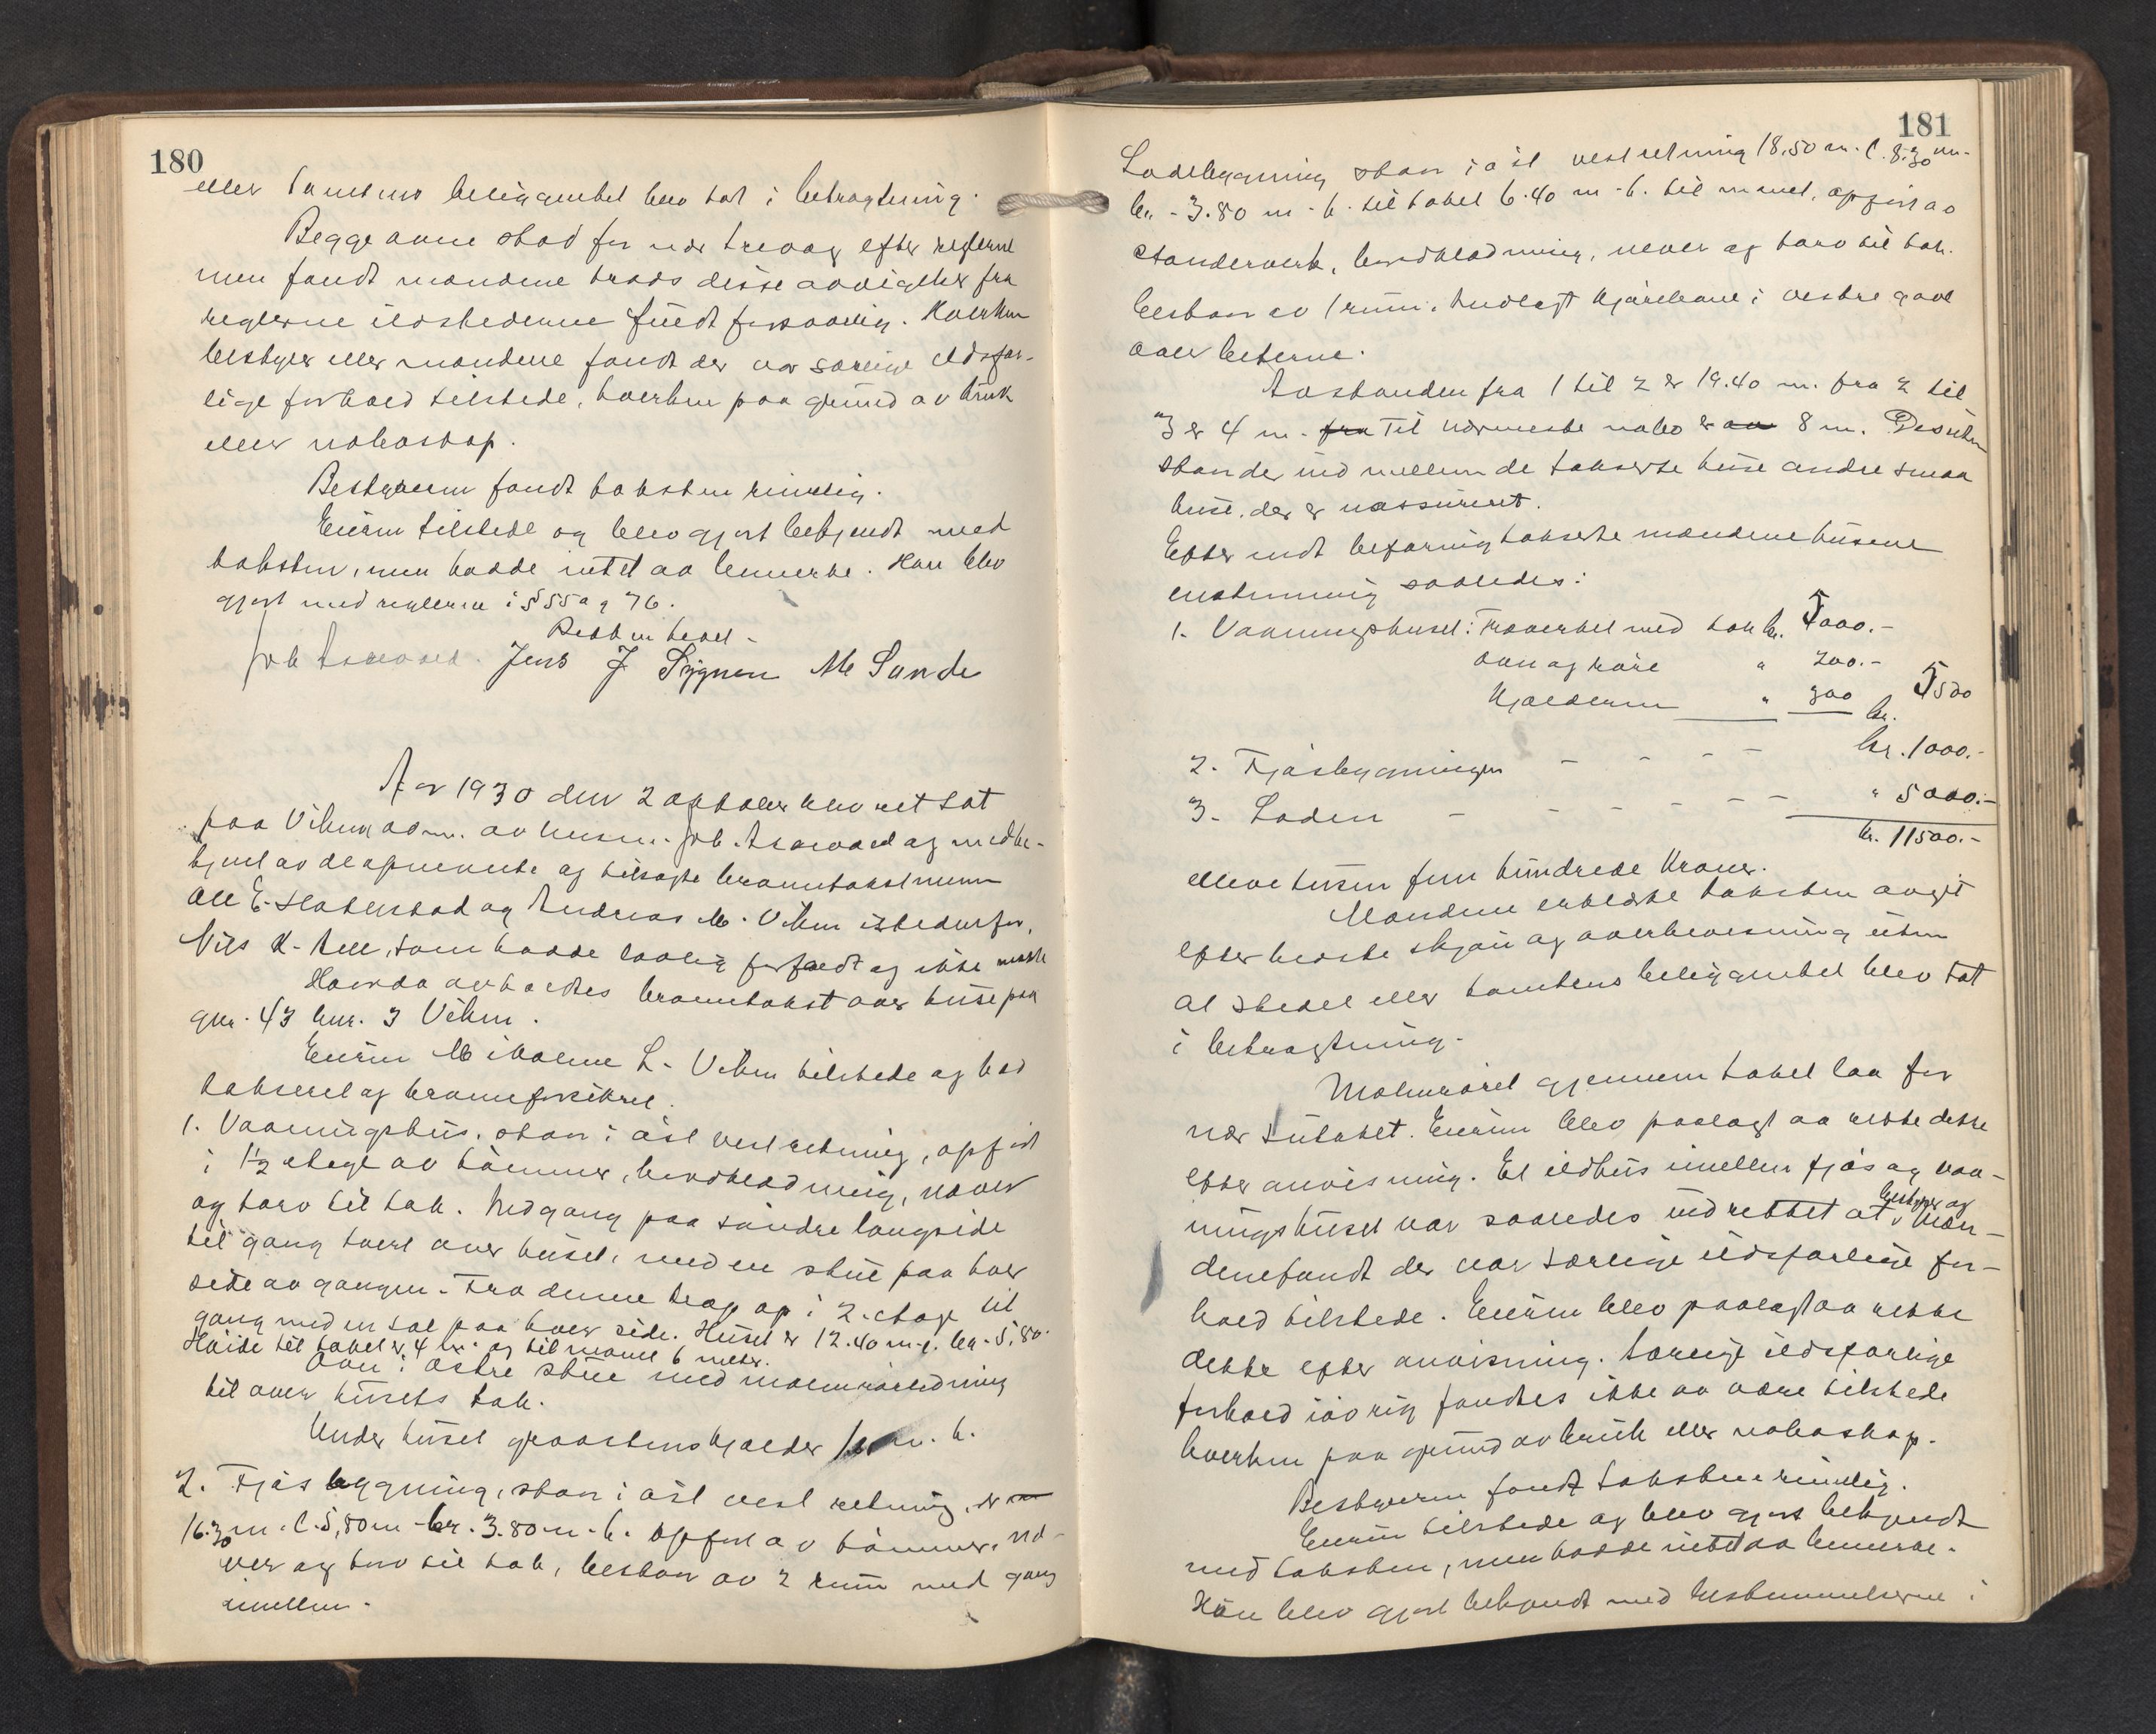 180
eller tomtens beliggenhet blev tat i betragtning.
Begge ovne stod for nær trevæg efter reglerne
men fandt mændene trods disse avvigelser fra
reglerne ildstedenne fuldt forsvarlig. Hverken
bestyrer eller mændene fandt der var særlige ildsfar-
lige forhold tilstede, hverken paa grund av bruk
eller naboskap.
Bestyreren fandt taksten rimelig.
Eieren tilstede og blev gjort bekjendt med
taksten, men hadde intet aa bemerke. Han blev
gjort med reglerne i § 55 og 76.
Retten hevet -
Joh Aarevold. Jens J Sygnen M Sunde
Aar 1930 den 2 oktober blev ret sat
paa Viken av Joh. Aarevold og medbe-
tjent av de opnevnte og tilsagte branntakstmenn
Ole E. Slotterstad og Andreas M. Viken istedenfor,
Nils K. Aell, som hadde lovlig forfald og ikke møtte
Hvorda avholdtes branntakst over huse paa
gnr. 43 bnr. 3 Viken.
Eieren Mikaline L. Viken tilstede og bad
taksert og branneforsikret.
1. Vaaningshus. staar i øst vest retning, opført
i 1½ etage av tømmer, bordklædning, næver
og torv til tak. Nedgang paa søndre langside
til gang tvert over huset, med en stue paa hver
side av gangen. Fra denne trap op i 2. etage til
gang med en sal paa hver side. Huset er 12.40 m. l. br. 5,80.
Høide til taket er 4 m. og til mønet 6 meter.
Ovn i østre stue med malmrørledning
til over husets tak.
Under huset graastenskjælder m. h.
2. Fjøsbygning, staar i øst vest retning, er
16.30 m. l. 5,80 m - br. 3.80 m. h. opført av tømmer, næ-
ver og torv til tak, bestaar av 2 rum med gang
imellem.
181
Ladebygning staar i øst vest retning 18.50 m. l. 8.30 m.
br. - 3.80 m - h. til taket 6.40 m - h. til mønet, opført av
standerverk, bordklædning, never og torv til tak.
bestaar av 1 rum. Indlagt kjørebane i vestre gavl
over beterne.
Avstanden fra 1 til 2 er 19.40 m. fra 2 til
3 er 4 m. fra Til nærmeste nabo er 8 m. Desuten
staar der ind mellem de takserte huse andre smaa
huse, der er uassurert.
Efter endt befaring takserte mændene husene
enstemmig saaledes:
1. Vaaningshuset: Træverket med tak kr. 5000.-
Ovn og røre " 200.-
Kjælderen " 300 kr. 5500
2. Fjøsbygningen - - - - kr. 1000.-
3. Laden - - - - - " 5000.-
kr. 11500.-
elleve tusen fem hundrede kroner.
Mændene erklærte taksten avgit
efter bedste skjøn og overbevisning uten
at stedet eller tomtens beliggenhet blev tat
i betragtning.
Malmrøret gjennem taket laa for
nær sutaket. Eieren blev paalagt aa rette dette
efter anvisning. Et ildhus imellem fjøs og vaa-
ningshuset var saaledes indrettet at bestyrer og mæn-
dene fandt der var særlige ildsfarlige for-
hold tilstede. Eieren blev paalagt aa rette
dette efter anvisning. Særlige ildsfarlige
forhold iøvrig fandtes ikke aa være tilstede
hverken paa grund av bruk eller naboskap.
Bestyreren fandt taksten rimelig.
Eieren tilstede og blev gjort bekjendt
med taksten, men hadde intet aa bemerke.
Han blev gjort bekjendt med bestemmelserne i